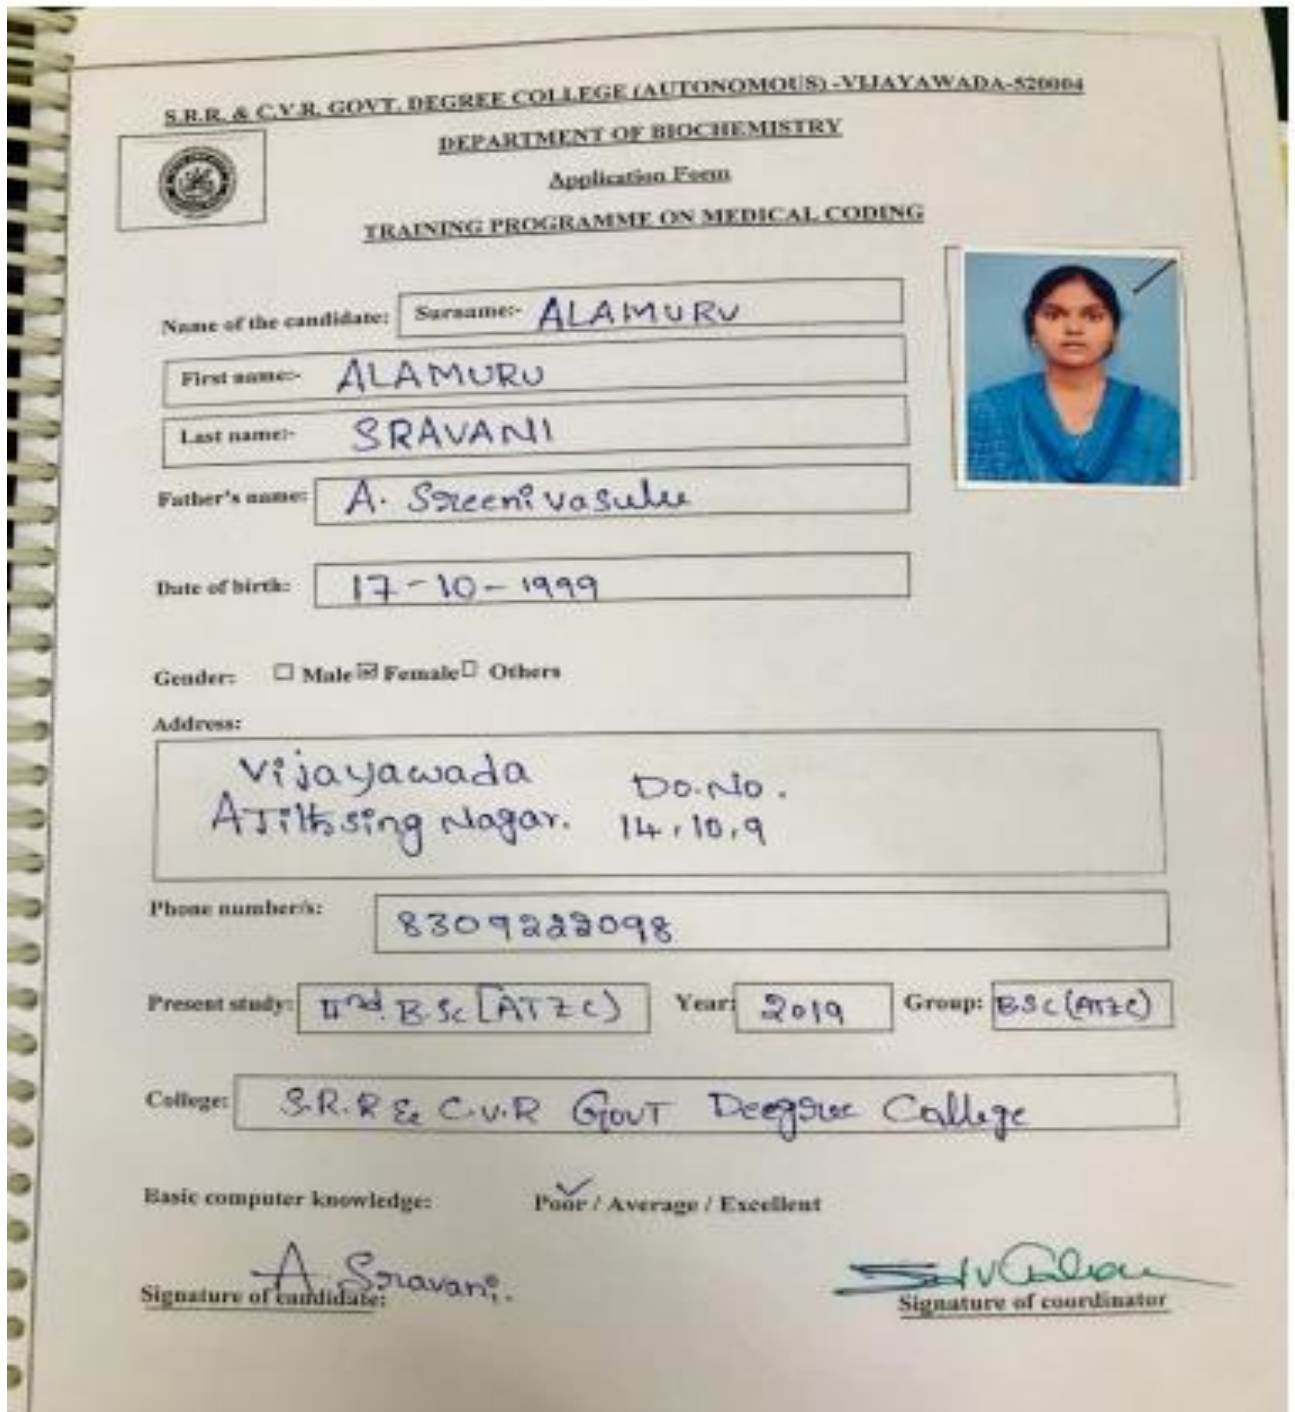 S.R.R. & C.V.R. GOVT. DEGREE COLLEGE (AUTONOMOUS) -VIJAYAWADA-520004
DEPARTMENT OF BIOCHEMISTRY
Application Form
TRAINING PROGRAMME ON MEDICAL CODING
Name of the candidate: Surname:- ALAMURU
First name:- ALAMURU
Last name:- SRAVANI
Father's name: A. Sreenivasulu
Date of birth: 17-10-1999
Gender: ☐ Male ☑ Female ☐ Others
Address:
Vijayawada Do.No.
Ajithsing Nagar. 14,10,9
Phone number/s: 8309222098
Present study: IInd. B.Sc [ATZC) Year: 2019 Group: BSC (ATZC)
College: S.R.R & C.V.R GOVT Deegree College
Basic computer knowledge: Poor / Average / Excellent
A. Sravani.
Signature of candidate:
Signature of coordinator